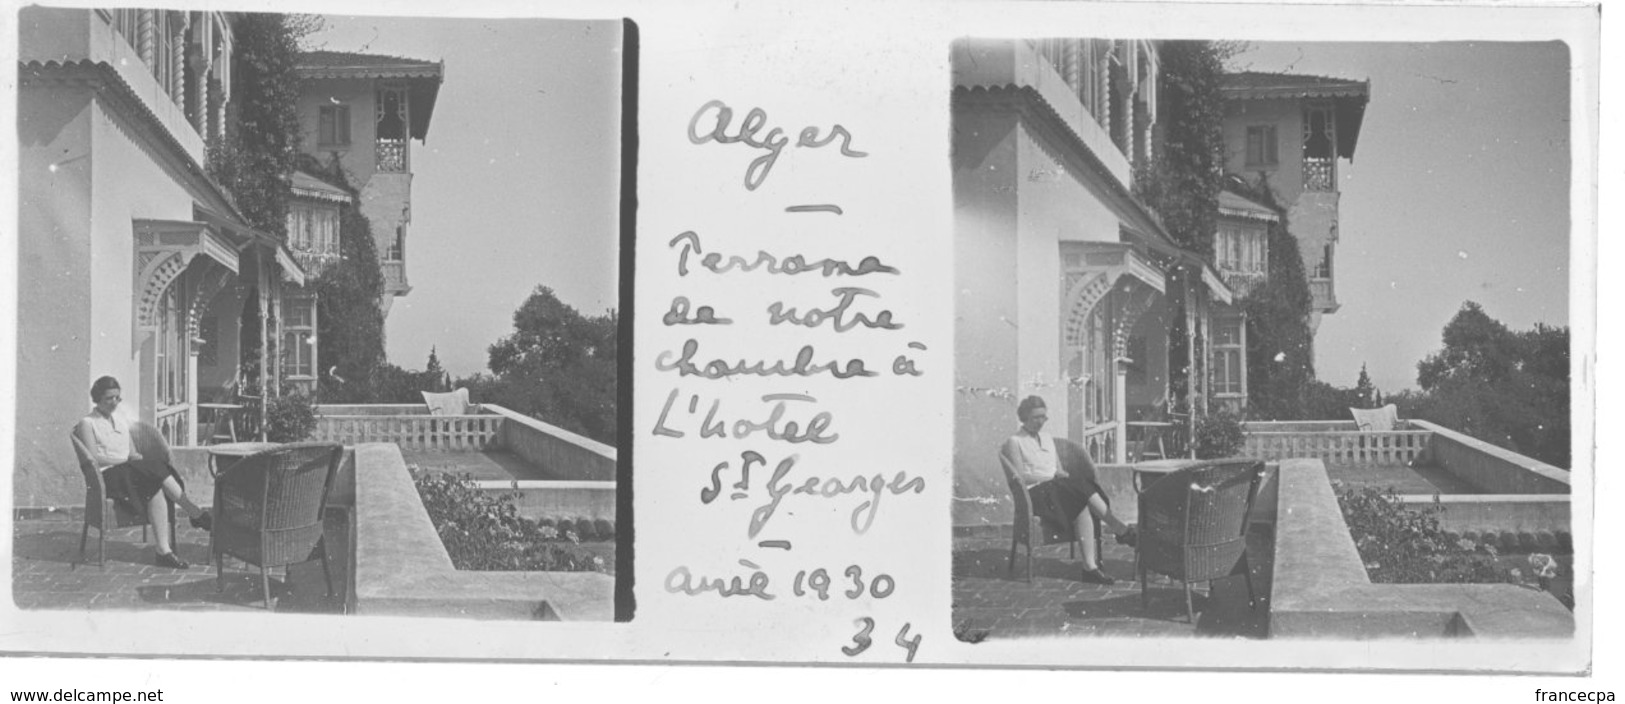 Alger
—
Terrasse
de notre
chambre à
L'hotel
St Georges
—
Avril 1930
34
www.delcampe.net
francecpa